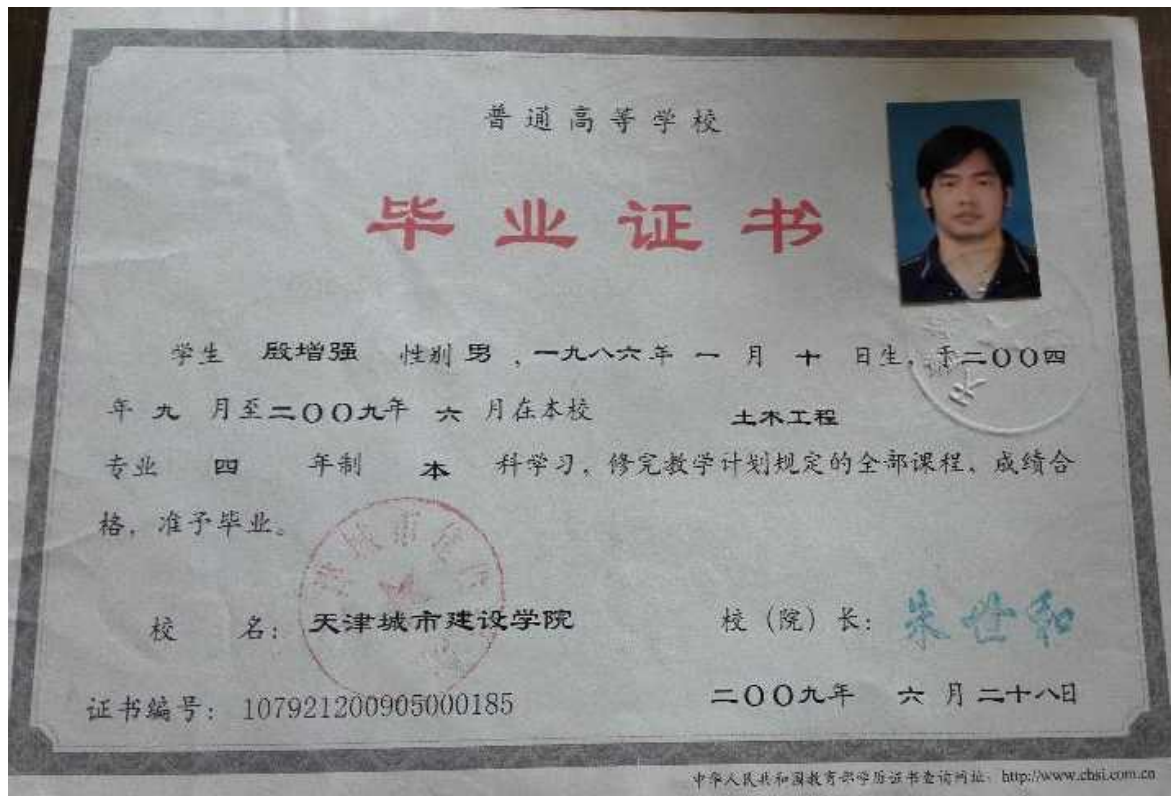 普通高等学校
毕业证书
学生 殷增强 性别 男 ，一九八六年 一 月 十 日生，于二〇〇四
年 九 月至二〇〇九年 六 月在本校 土木工程
专业 四 年制 本 科学习，修完教学计划规定的全部课程，成绩合
格，准予毕业。
校 名：天津城市建设学院 校（院）长：朱世和
证书编号：107921200905000185 二〇〇九年 六 月 二十八日
中华人民共和国教育部学历证书查询网址：http://www.chsi.com.cn